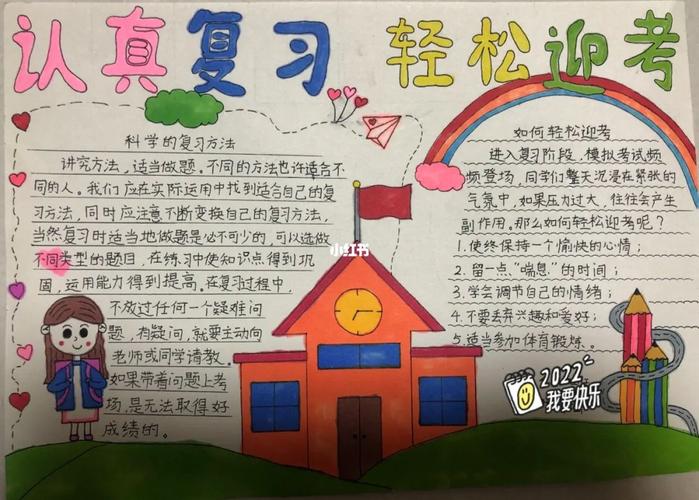 认真复习 轻松迎考
科学的复习方法
讲究方法，适当做题。不同的方法也许适合不
同的人。我们应在实际运用中找到适合自己的复
习方法，同时应注意不断变换自己的复习方法，
当然复习时适当地做题是必不可少的，可以选做
不同类型的题目，在练习中使知识点得到巩
固，运用能力得到提高。在复习过程中，
不放过任何一个疑难问
题，有疑问，就要主动向
老师或同学请教。
如果带着问题上考
场，是无法取得好
成绩的。
小红书
如何轻松迎考
进入复习阶段，模拟考试频
频登场，同学们整天沉浸在紧张的
气氛中，如果压力过大，往往会产生
副作用。那么如何轻松迎考呢？
1.使终保持一个愉快的心情；
2.留一点“喘息”的时间；
3.学会调节自己的情绪；
4.不要丢弃兴趣和爱好；
5.适当参加体育锻炼。
2022
我要快乐